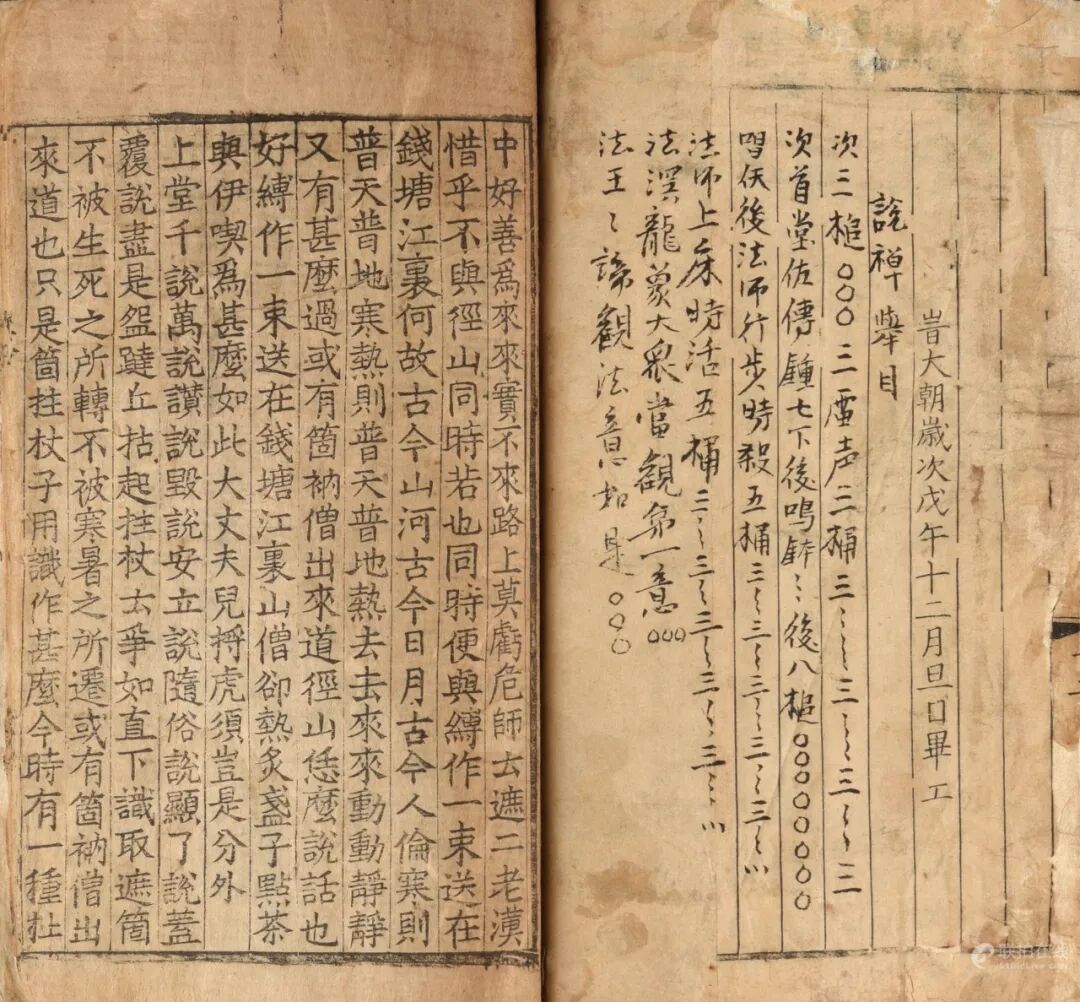 旹大朝歲次戊午十二月旦日畢工
說禅舉目
次三槌○○○三雷声三桶三〻〻三〻〻三〻〻三
次首堂佐傳鍾七下後鳴鉢〻〻後八槌○○○○○○○○
後法師行步時殺五桶三〻〻三〻〻三〻〻三〻〻三〻〻
法师上床時活五桶三〻〻三〻〻三〻〻三〻〻三〻〻
法溟龍象大衆當觀第一意○○○
法王〻諦觀法意如是○○○
中好善爲來來實不來路上莫虧危師去遮二老漢
惜乎不與徑山同時若也同時便與縛作一束送在
錢塘江裏何故古今山河古今日月古今人倫寒則
普天普地寒熱則普天普地熱去去來來動動靜靜
又有甚麼過或有箇衲僧出來道徑山恁麼說話也
好縛作一束送在錢塘江裏山僧卻熱炙盞子點茶
與伊喫爲甚麼如此大丈夫兒捋虎須豈是分外
上堂千說萬說讚說毀說安立說隨俗說顯了說蓋
覆說盡是躂丘拈起拄杖云爭如直下識取遮箇
不被生死之所轉不被寒暑之所遷或有箇衲僧出
來道也只是箇拄杖子用識作甚麼今時有一種扯